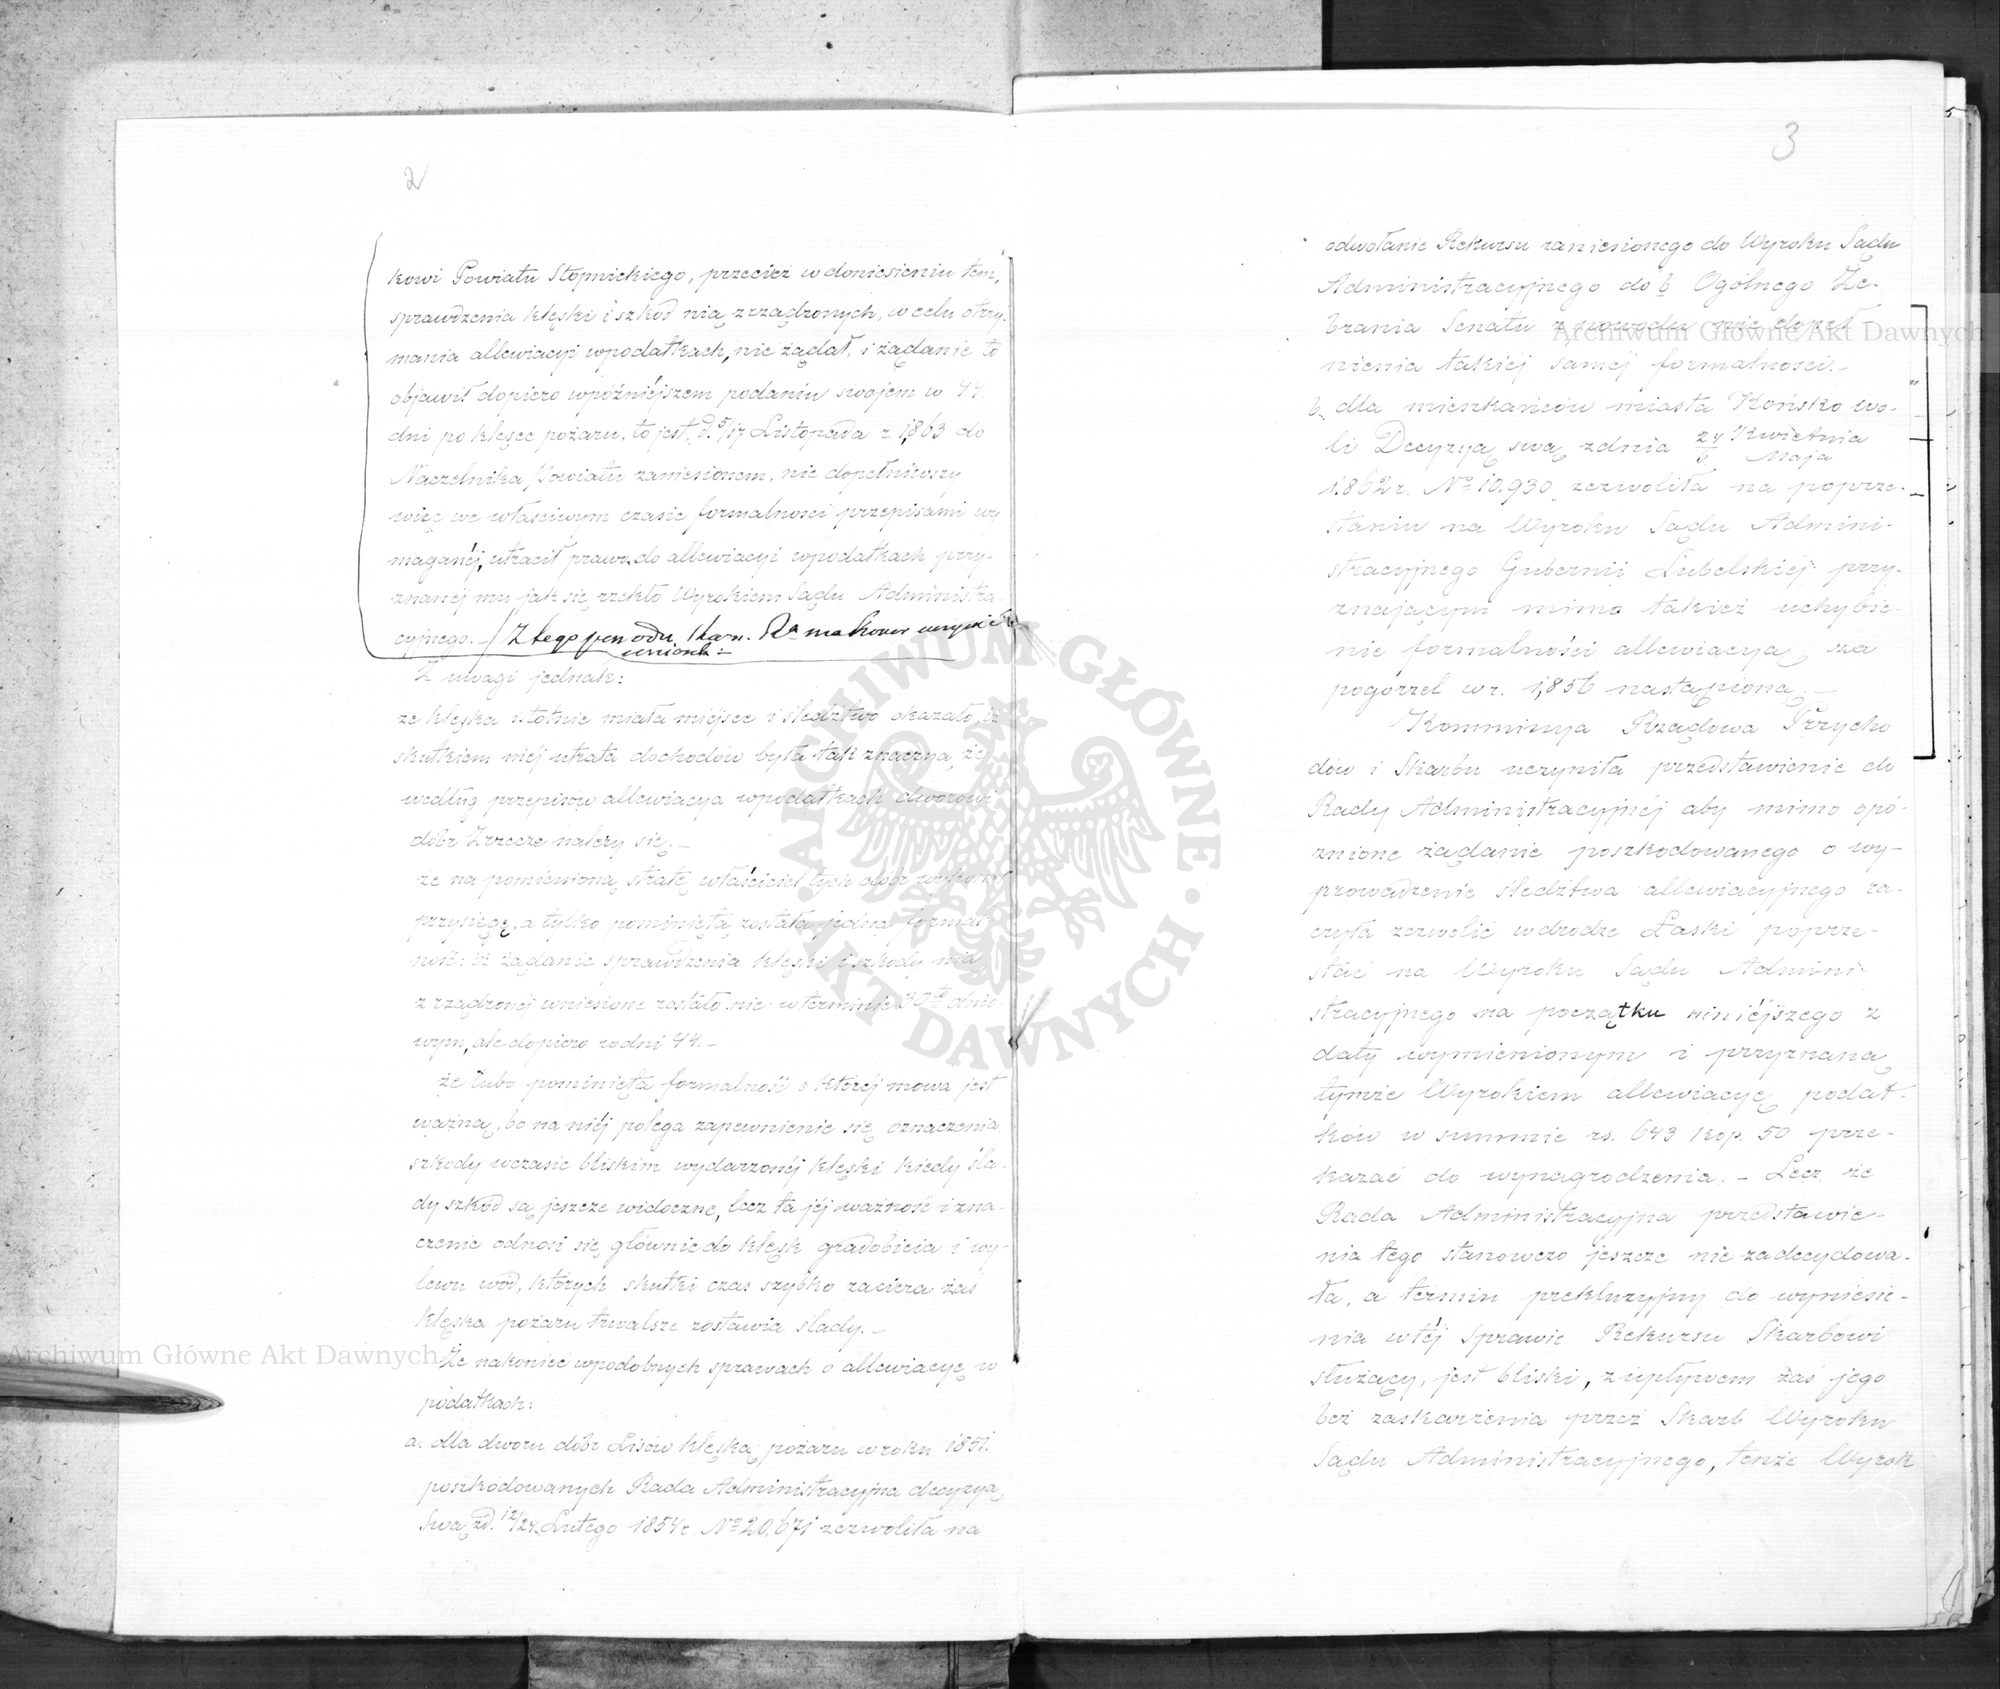 2
kowi Powiatu Stopnickiego, przecież w doniesieniu tem,
sprawdzenia klęski i szkód nią zrządzonych, w celu otrzy-
mania allewiacyi w podatkach, nie żądał, i żądanie to
objawił dopiero wpóźniejszem podaniu swojem w 44.
dni po klęsce pożaru, to jest, d. 5/17 Listopada r. 1,863 do
Naczelnika Powiatu zaniesionem, nie dopełniwszy
więc we właściwym czasie formalności przepisami wy
maganéj, utracił prawo do allewiacyi w podatkach przy-
znanéj mu jak się rzekło Wyrokiem Sądu Administra-
cyjnego. – / Z tego powodu
wniosek:
Z uwagi jednak:
że klęska istotnie miała miejsce i śledztwo okazało, iż
skutkiem niéj utrata dochodów była tak znaczna, że
według przepisów allewiacya w podatkach dworowi
dóbr Zrzecze należy się. –
że na pomienioną stratę właściciel tych dóbr wykonał
przysięgę, a tylko pominiętą została jedna formal
ność: iż żądanie sprawdzenia klęski i szkody nią
zrządzonéj wniesione zostało nie w terminie 30to dnio-
wym, ale dopiero w dni 44. –
że lubo pominięta formalność o któréj mowa jest
ważną, bo na niéj polega zapewnienie się oznaczenia
szkody wczasie bliskim wydarzonéj klęski kiedy śla-
dy szkód są jeszcze widoczne, lecz ta jéj ważność i zna-
czenie odnosi się głównie do klęsk gradobicia i wy-
lewu wód, których skutki czas szybko zaciera zaś
klęska pożaru trwalsze zostawia ślady. –
Że nakoniec wpodobnych sprawach o allewiacyę w
podatkach:
a. dla dworu dóbr Lisów klęską pożaru w roku 1851.
poszkodowanych Rada Administracyjna decyzyą
swą zd. 12/24 Lutego 1854 r. No 20,671 zezwoliła na
3
odwołanie Rekursu zaniesionego do Wyroku Sądu
Administracyjnego do b Ogólnego Ze-
brania Senatu z powodu nie dopeł
nienia takiéj saméj formalności. –
b. dla mieszkańców miasta Końsko wo-
li Decyzyą swą zdnia 24 Kwietnia
6 Maja
1.862 r. No 10,930 zezwoliła na poprze-
staniu na Wyroku Sądu Admini-
stracyjnego Gubernii Lubelskiéj przy-
znającym mimo takież uchybie-
nie formalności allewiacyą za
pogorzel w r. 1,856 nastąpioną. –
Kommissya Rządowa Przycho
dów i Skarbu uczyniła przedstawienie do
Rady Administracyjnéj aby mimo opó-
źnione żądanie poszkodowanego o wy-
prowadzenie śledztwa allewiacyjnego ra-
czyła zezwolić wdrodze Łaski poprze-
stać na Wyroku Sądu Admini-
stracyjnego na początku niniéjszego z
daty wymienionym i przyznaną
tymże Wyrokiem allewiacyę podat-
ków w summie rs. 643 kop. 50 prze-
kazać do wynagrodzenia. – Lecz, że
Rada Administracyjna przedstawie-
nia tego stanowczo jeszcze nie zadecydowa-
ła, a termin prekluzyjny do wyniesie-
nia wtéj Sprawie Rekursu Skarbowi
służący, jest bliski, z upływem zaś jego
bez zaskarżenia przez Skarb Wyroku
Sądu Administracyjnego, tenże Wyrok
ARCHIWUM GŁÓWNE · AKT DAWNYCH ·
Archiwum Główne Akt Dawnych
Archiwum Główne Akt Dawnych